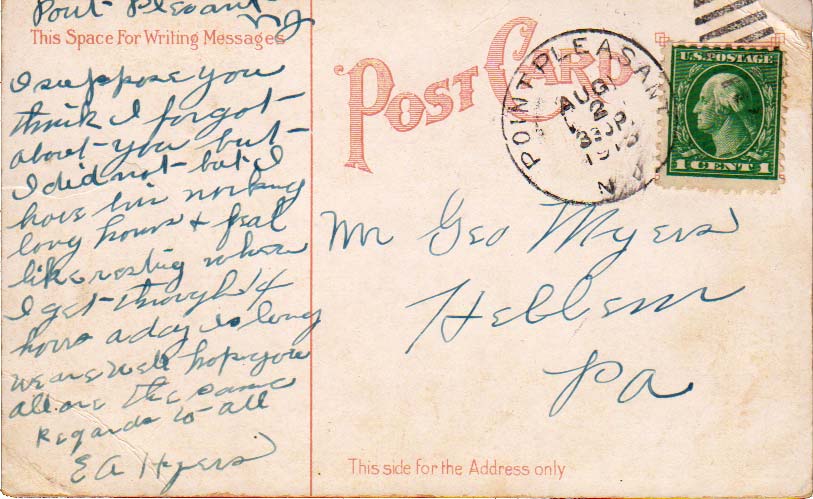 Pont Plesant
NJ
This Space For Writing Messages
I suppose you
think I forgot
about you but
I did not but I
have bin working
long hours + feal
like resting when
I get through 14
hours a day is long
we are well hope you
all are the same
Regards to all
E A Hyers
POST CARD
POINT PLEASANT
AUG
2
N.J.
U.S. POSTAGE
1 CENT 1
Mr Geo Myers
Hellem
Pa
This side for the Address only